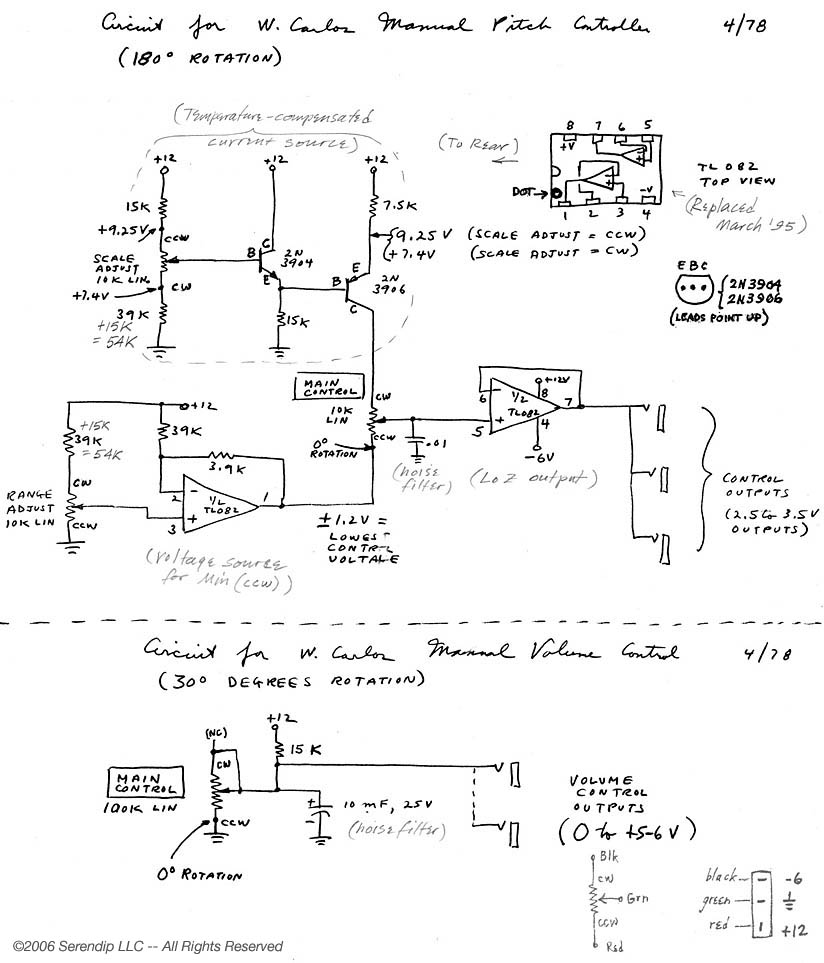 Circuit for W. Carlos Manual Pitch Controller 4/78
(180° ROTATION)
(Temperature-compensated
current source)
+12
+12
+12
(To Rear)
8 7 6 5
+V
-V
DOT
1 2 3 4
TL082
TOP VIEW
(Replaced
March '95)
15K
+9.25V
CCW
SCALE
ADJUST
10K LIN.
CW
+7.4V
39K
+15K
= 54K
B
C
E
2N
3904
15K
7.5K
9.25V (SCALE ADJUST = CCW)
+7.4V (SCALE ADJUST = CW)
E
B
C
2N
3906
E B C
2N3904
2N3906
(LEADS POINT UP)
MAIN
CONTROL
CW
10K
LIN
CCW
0°
ROTATION
.01
(noise
filter)
6
5
1/2
TL082
+12V
8
7
4
-6V
(Lo Z output)
CONTROL
OUTPUTS
(2.5 to 3.5V
OUTPUTS)
+12
+15K
39K
=54K
39K
3.9K
CW
RANGE
ADJUST
10K LIN
CCW
2
-
+
3
1/2
TL082
1
(voltage source
for Min (ccw))
±1.2V =
LOWEST
CONTROL
VOLTAGE
Circuit for W. Carlos Manual Volume Control 4/78
(30° DEGREES ROTATION)
(NC)
+12
CW
15K
MAIN
CONTROL
100K LIN
CCW
0° ROTATION
+
-
10 mF, 25V
(noise filter)
VOLUME
CONTROL
OUTPUTS
(0 to +5-6 V)
Blk
CW
Grn
CCW
Red
black - -6
green -
red +12
©2006 Serendip LLC -- All Rights Reserved